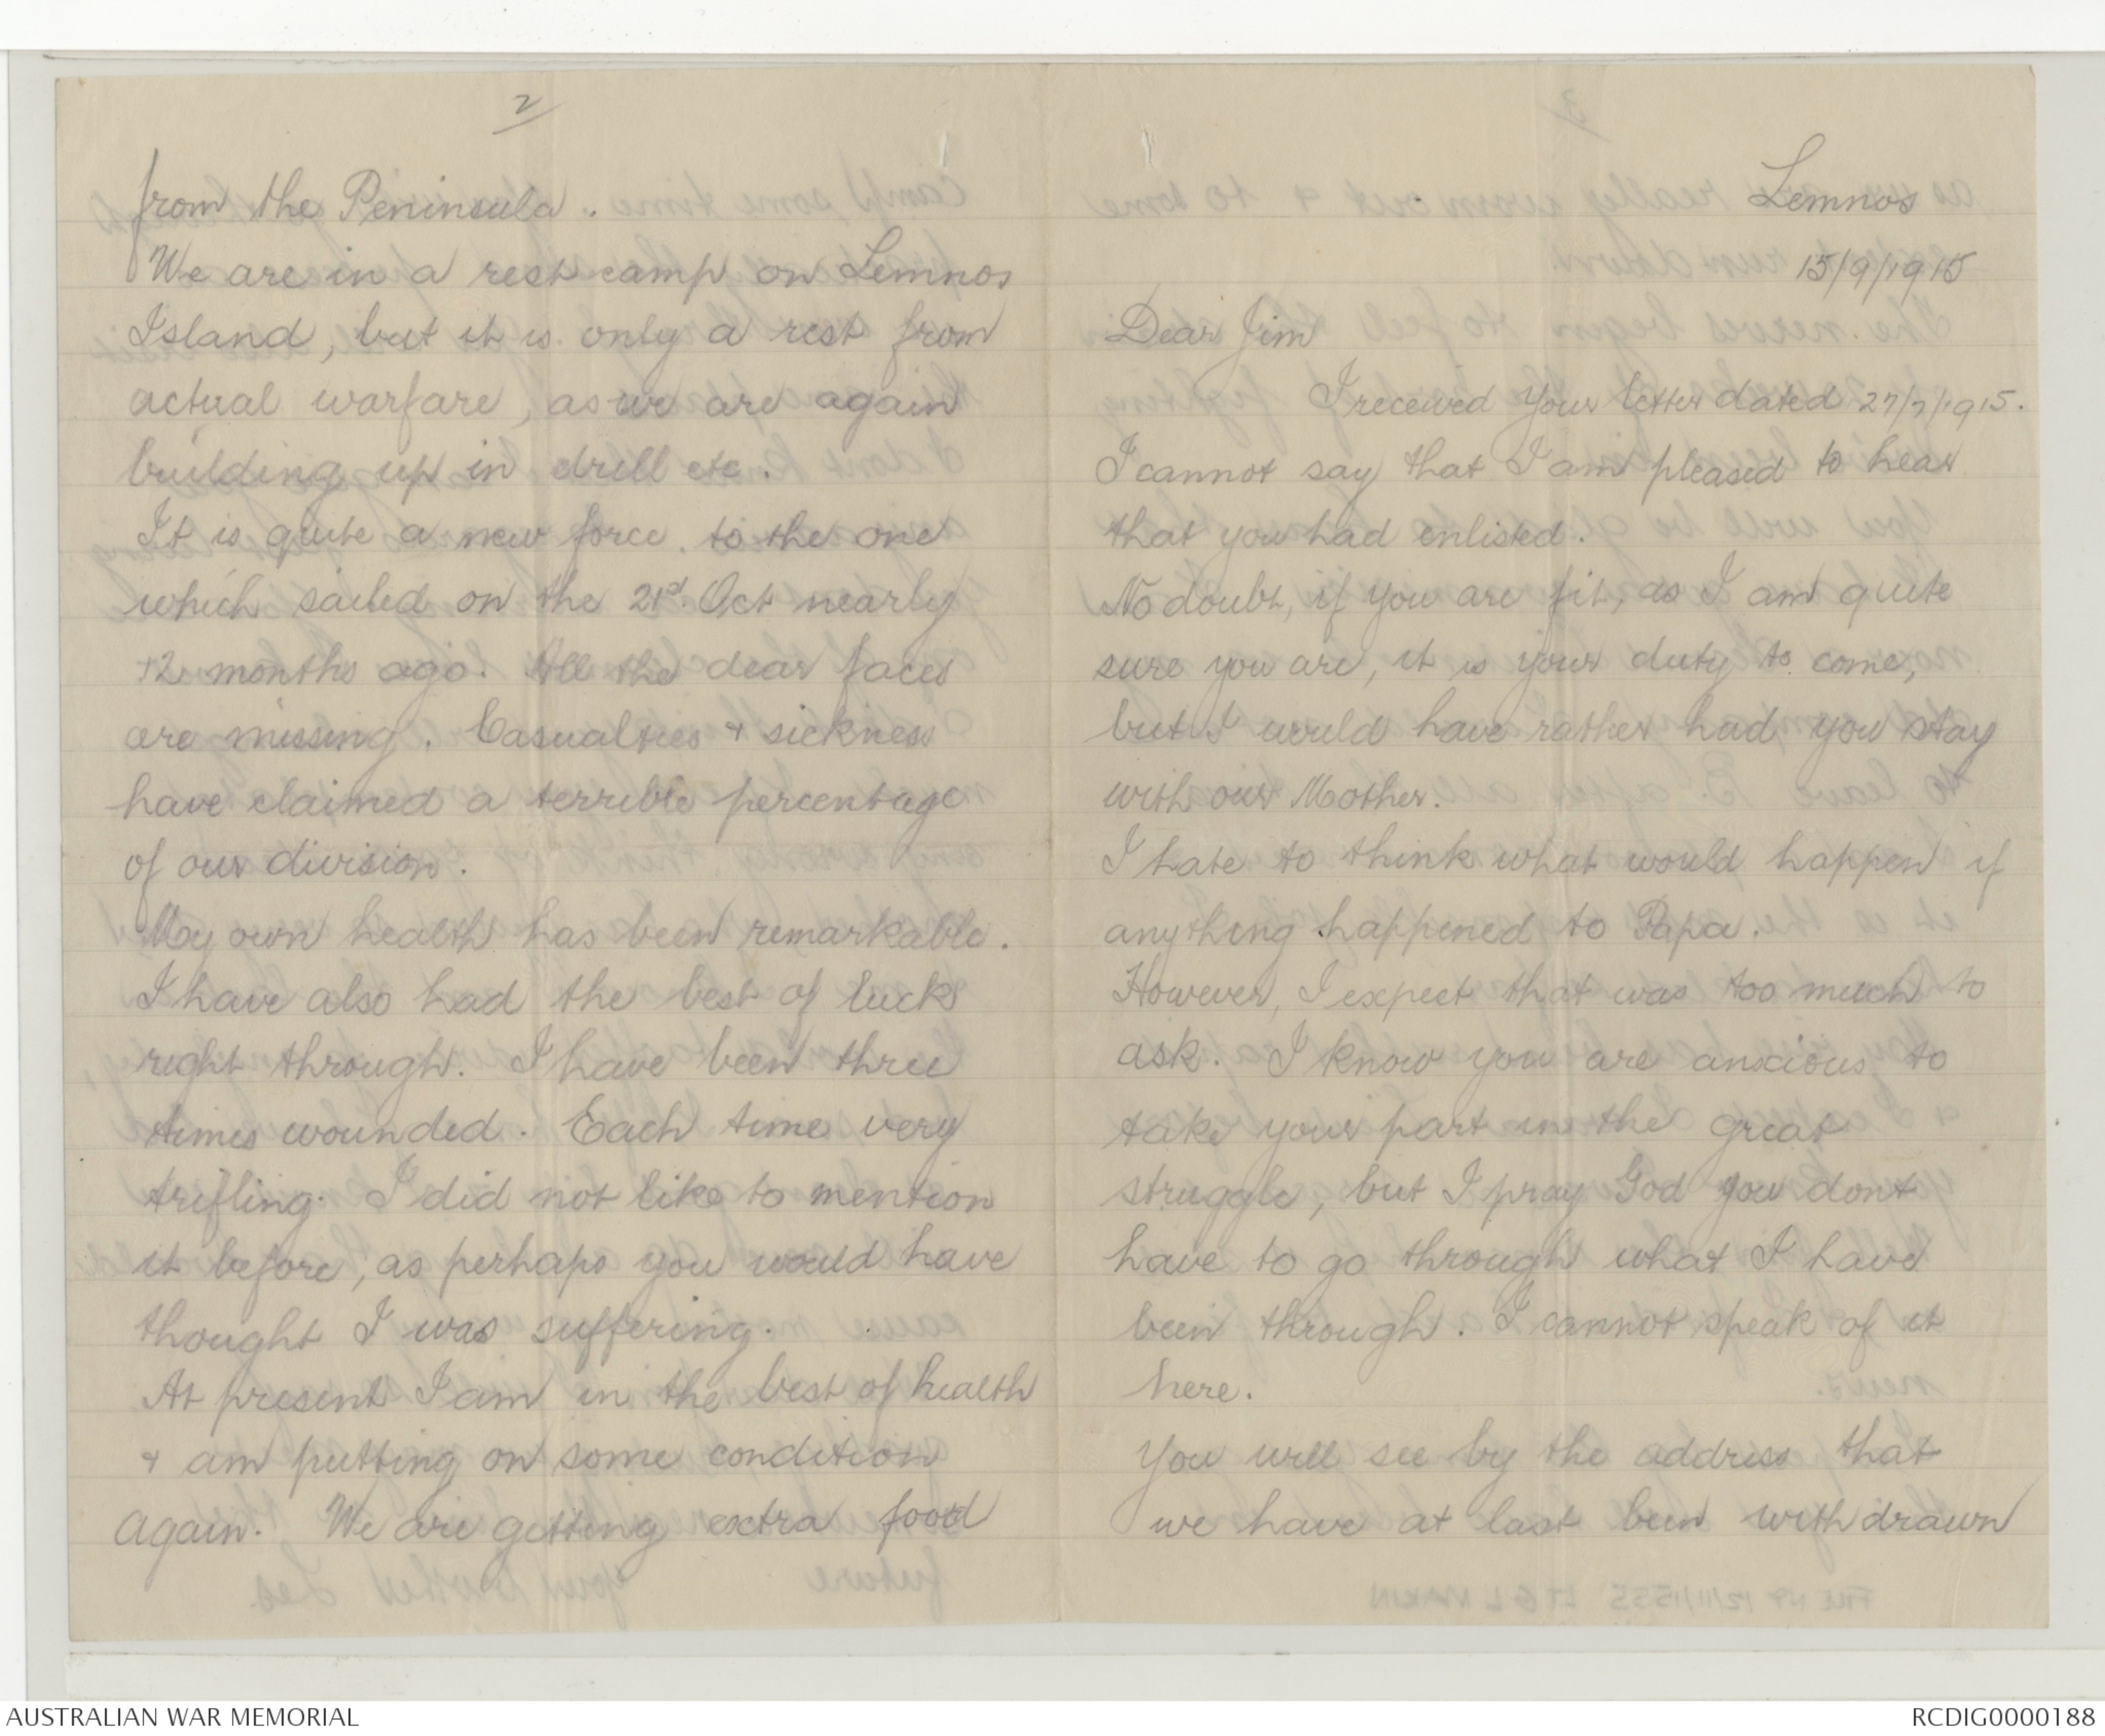 Lemnos
15/9/1915
Dear Jim
I received your letter dated 27/7/1915.
I cannot say that I am pleased to hear
that you had enlisted.
No doubt, if you are fit, as I am quite
sure you are, it is your duty to come,
but I would have rather had you stay
with our Mother.
I hate to think what would happen if
anything happened to Papa.
However, I expect that was too much to
ask. I know you are anxious to
take your part in the great
struggle, but I pray God you dont
have to go through what I have
been through. I cannot speak of it
here.
You will see by the address that
we have at last been withdrawn
2
from the Peninsula.
We are in a rest camp on Lemnos
Island, but it is only a rest from
actual warfare, as we are again
building up in drill etc.
It is quite a new force to the one
which sailed on the 21st. Oct nearly
12 months ago. All the dear faces
are missing. Casualties & sickness
have claimed a terrible percentage
of our division.
My own health has been remarkable.
I have also had the best of luck
right through. I have been three
times wounded. Each time very
trifling. I did not like to mention
it before, as perhaps you would have
thought I was suffering.
At present I am in the best of health
& am putting on some condition
again. We are getting extra food
AUSTRALIAN WAR MEMORIAL
RCDIG0000188